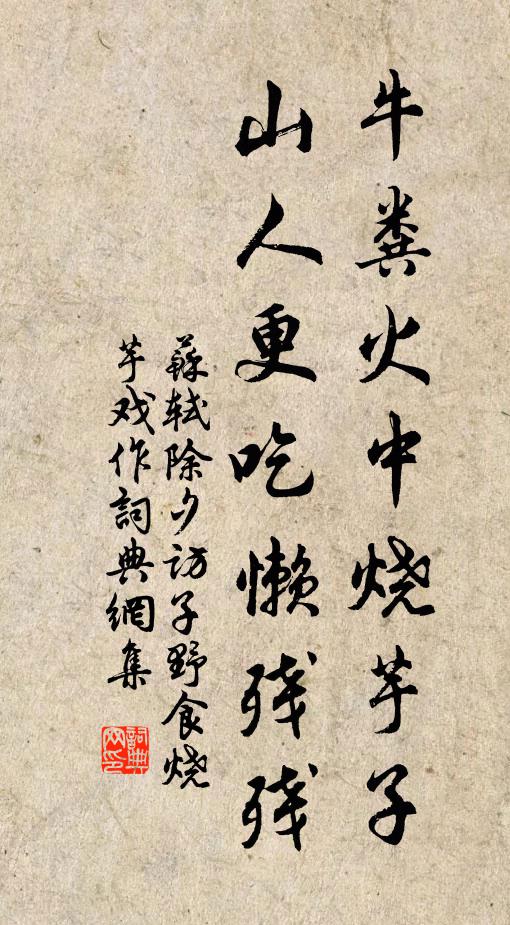 牛粪火中烧芋子
山人更吃懒残残
蘇軾除夕訪子野食烧
芋戏作詞典網集
詞典
网印